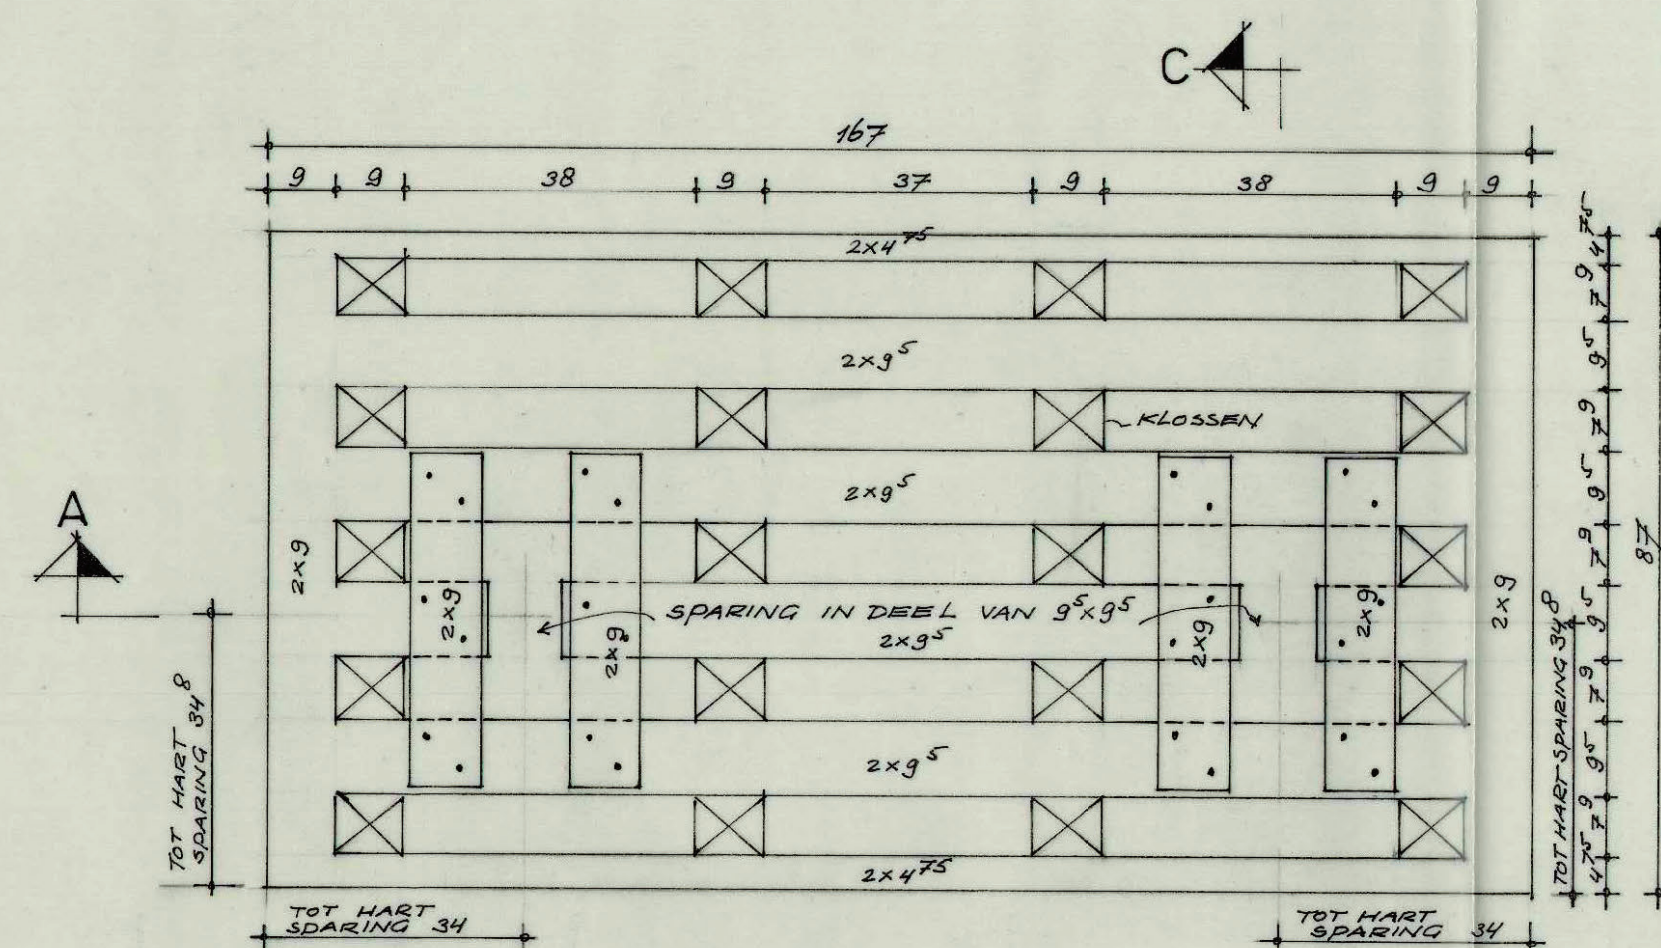 C
167
9 9 38 9 37 9 38 9 9
2×4⁷⁵
2×9⁵
KLOSSEN
2×9⁵
A
2×9
2×9
2×9
2×9
2×9
2×9
SPARING IN DEEL VAN 9⁵×9⁵
2×9⁵
2×9⁵
2×4⁷⁵
TOT HART
SPARING 34⁸
TOT HART
SPARING 34
TOT HART
SPARING 34
TOT HART SPARING 34⁸
4⁷⁵ 7⁹ 9⁵ 7⁹ 9⁵ 7⁹ 9⁵ 7⁹ 9⁵ 7⁹ 4⁷⁵
87